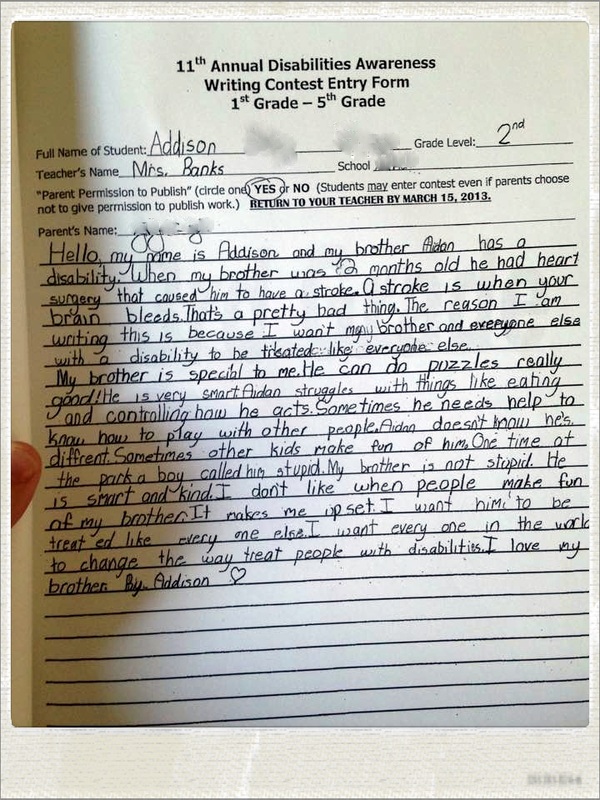 11th Annual Disabilities Awareness
Writing Contest Entry Form
1st Grade – 5th Grade
Full Name of Student: Addison Grade Level: 2nd
Teacher's Name Mrs. Banks School
"Parent Permission to Publish" (circle one) YES or NO (Students may enter contest even if parents choose
not to give permission to publish work.) RETURN TO YOUR TEACHER BY MARCH 15, 2013.
Parent's Name:
Hello, my name is Addison and my brother Aidan has a
disability. When my brother was 2 months old he had heart
surgery that caused him to have a stroke. A stroke is when your
brain bleeds. That's a pretty bad thing. The reason I am
writing this is because I want my brother and everyone else
with a disability to be treated like everyone else.
My brother is special to me. He can do puzzles really
good! He is very smart. Aidan struggles with things like eating
and controlling how he acts. Sometimes he needs help to
know how to play with other people. Aidan doesn't know he's
diffrent. Sometimes other kids make fun of him. One time at
the park a boy called him stupid. My brother is not stupid. He
is smart and kind. I don't like when people make fun
of my brother. It makes me upset. I want him to be
treat ed like every one else. I want every one in the world
to change the way treat people with disabilities. I love my
brother. By. Addison ♡